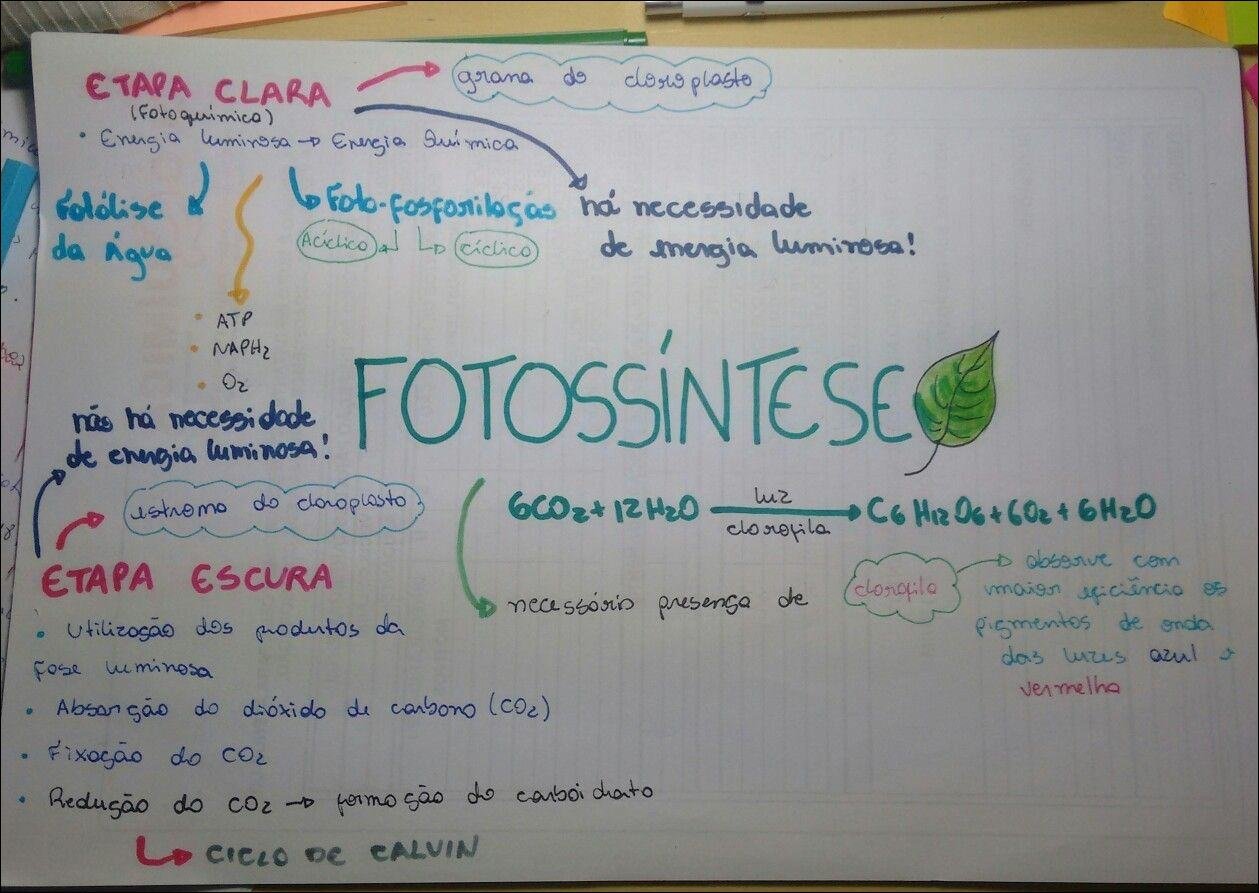 ETAPA CLARA
(Fotoquímica)
grana do cloroplasto
• Energia luminosa → Energia Química
Fotólise
da Água
Foto-fosforilação
Acíclico
cíclico
há necessidade
de energia luminosa!
• ATP
• NAPH2
• O2
FOTOSSÍNTESE
não há necessidade
de energia luminosa!
estroma do cloroplasto
6CO2+12H2O luz → C6H12O6+6O2+6H2O
clorofila
ETAPA ESCURA
necessário presença de clorofila
→ absorve com
maior eficiência os
pigmentos de onda
das luzes azul e
vermelha
• Utilização dos produtos da
fase luminosa
• Absorção do dióxido de carbono (CO2)
• Fixação do CO2
• Redução do CO2 → formação do carboidrato
CICLO DE CALVIN